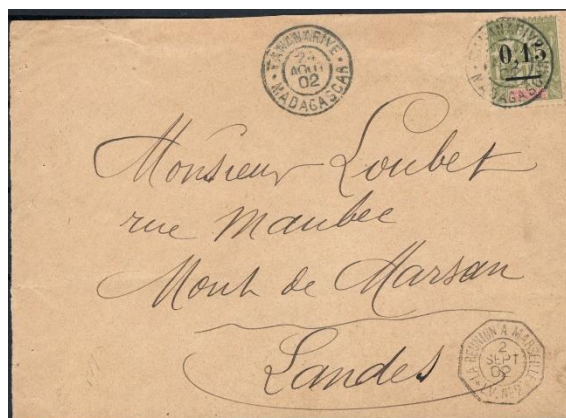 TANANARIVE
AOUT
02
MADAGASCAR
TANANARIVE
0,15
MADAGASCAR
Monsieur Loubet
rue Maubec
Mont de Marsan
Landes
LA REUNION A MARSEILLE
2
SEPT
02